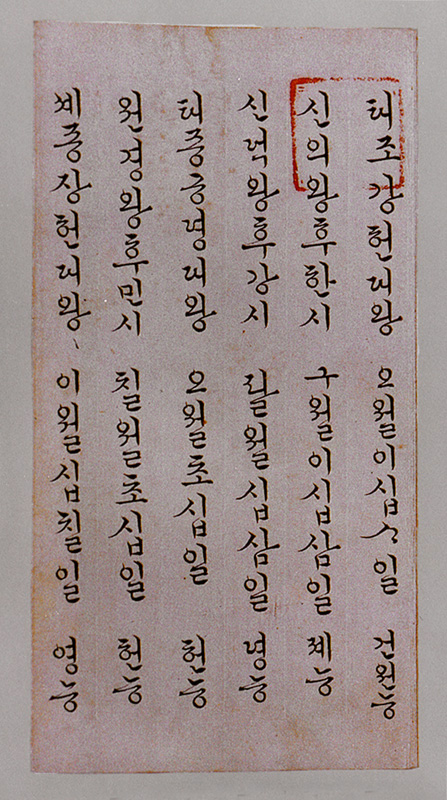 태조강헌대왕 오월이십ᄉᆞ일 건원능
신의왕후한시 구월이십삼일 졔능
신덕왕후강시 팔월십삼일 뎡능
태종공뎡대왕 오월초십일 헌능
원경왕후민시 칠월초십일 헌능
셰종장헌대왕 이월십칠일 영능